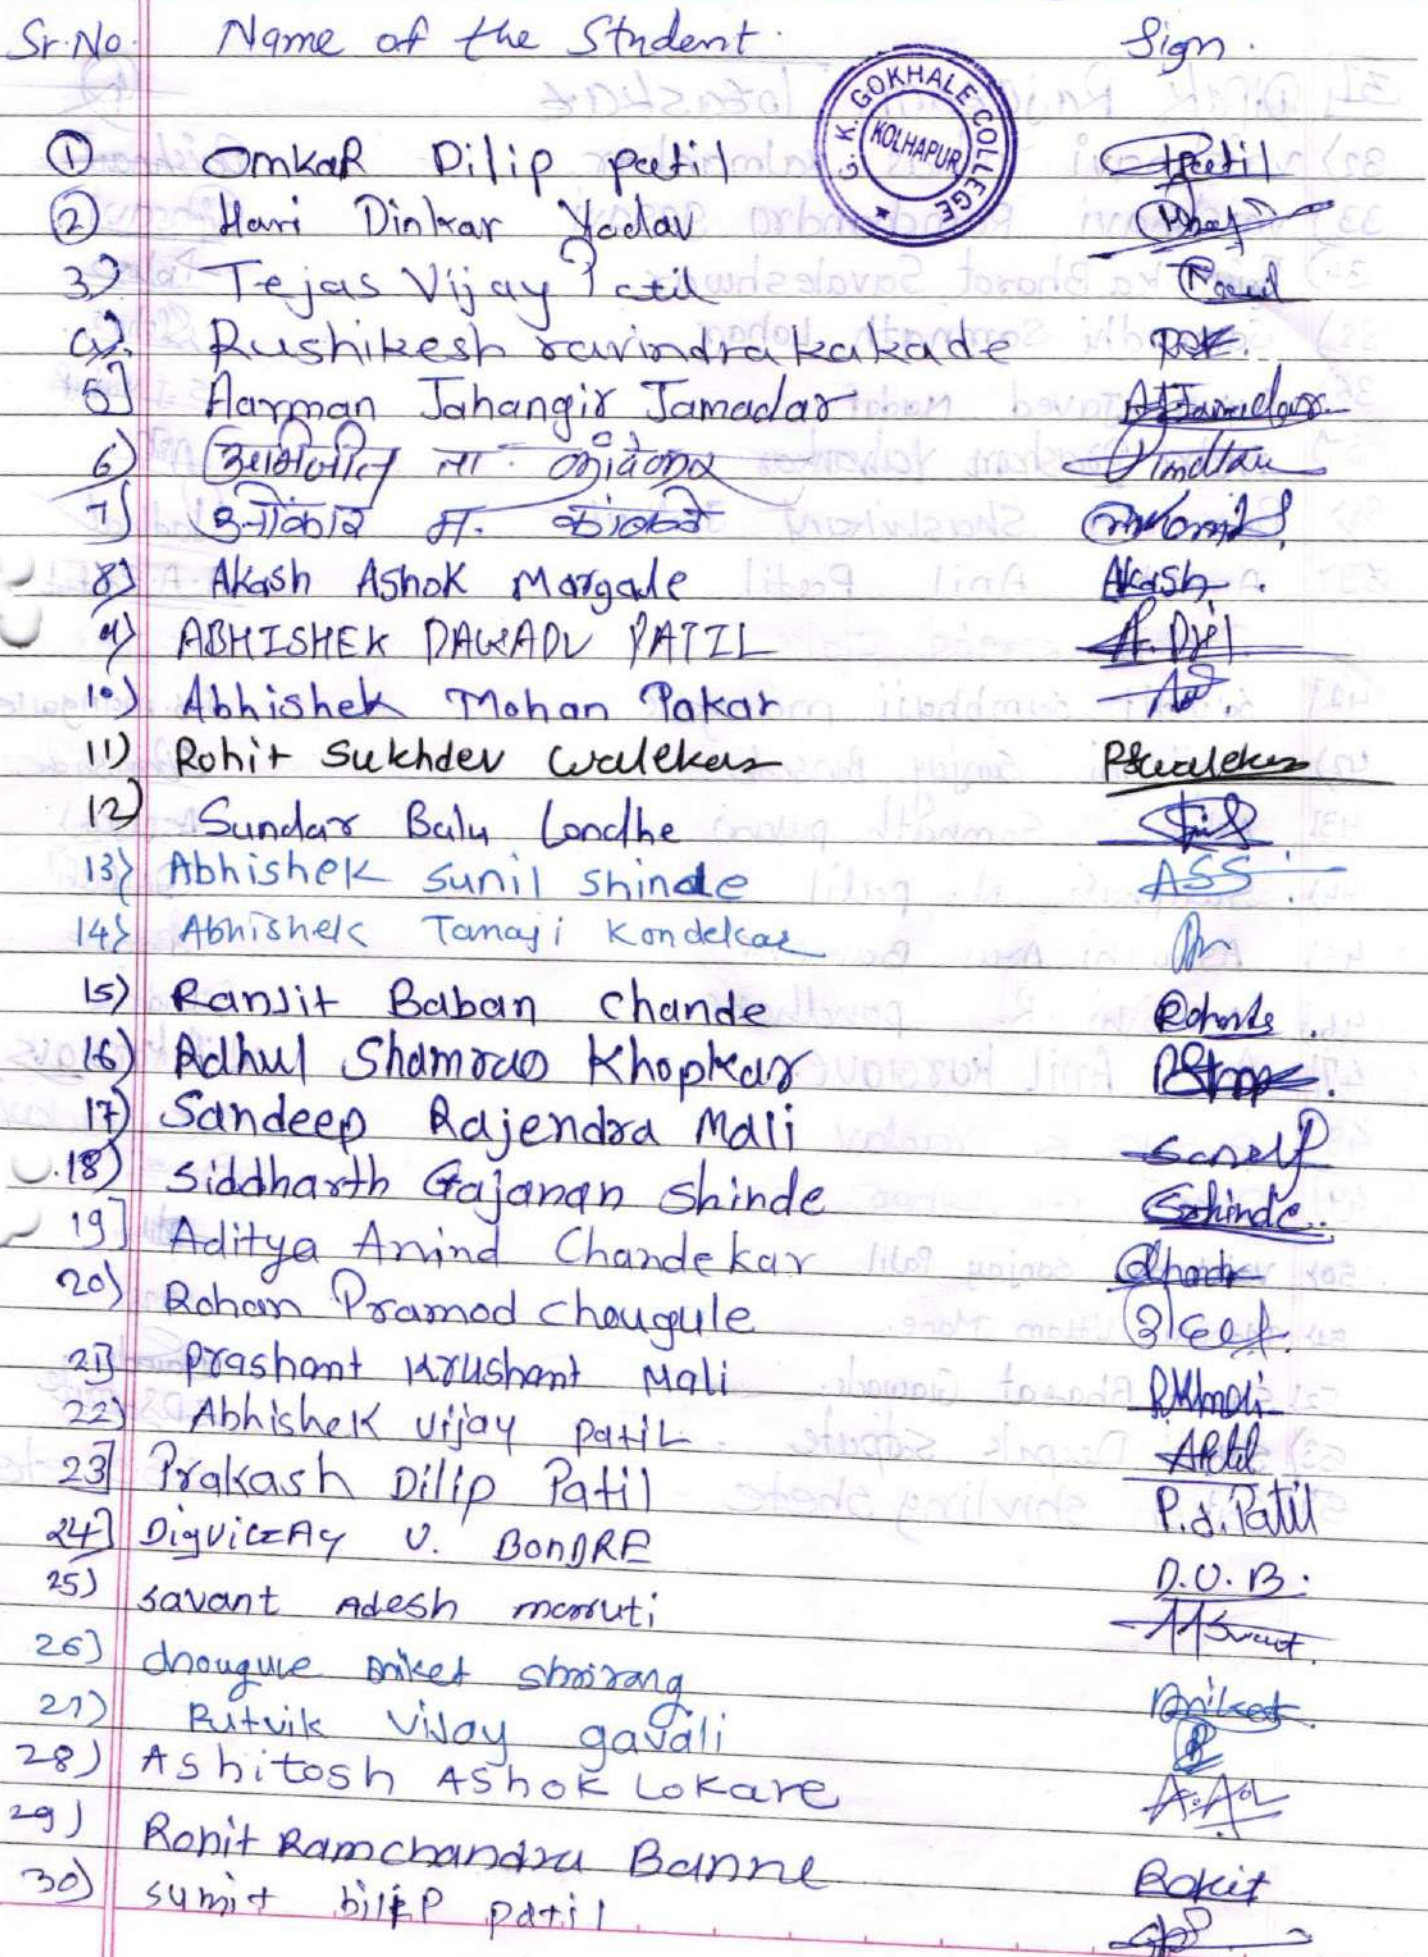 Sr.No. Name of the Student. Sign.
G. K. GOKHALE COLLEGE KOLHAPUR
① Omkar Dilip patil Patil
② Hari Dinkar Yadav
3) Tejas Vijay Patil
4) Rushikesh ravindra kakade
5] Aarman Jahangir Jamadar AJJamadar
6)
7) ओंकार म.
8) Akash Ashok Morgade Akash.
9) ABHISHEK DAWADU PATIL
10) Abhishek Mohan Pakar
11) Rohit Sukhdev Walekar RSWalekar
12) Sundar Balu Londhe
13) Abhishek Sunil Shinde ASS
14) Abhishek Tanaji Kondekar
15) Ranjit Baban Chande
16) Rahul Shamrao Khopkar
17) Sandeep Rajendra Mali
18) Siddharth Gajanan Shinde Sshinde..
19] Aditya Anind Chandekar
20) Rohan Pramod Chougule
21] Prashant Krushant Mali PKmali
22) Abhishek vijay patil
23] Prakash Dilip Patil P.d.Patil
24] DigviczAy U. BonDRE D.U.B.
25) savant Adesh maruti
26) chougule Aniket shrirang Aniket.
27) Rutvik Vijay gavali R
28) Ashitosh Ashok Lokare A.A.L
29) Rohit Ramchandra Banne Rohit
30) sumit dilip patil